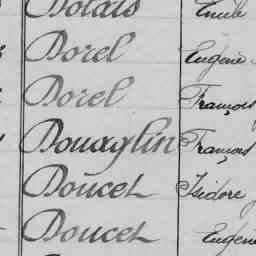 Dolais Emile
Dorel Eugène
Dorel François
Douaglin François
Doucet Isidore
Doucet Eugène